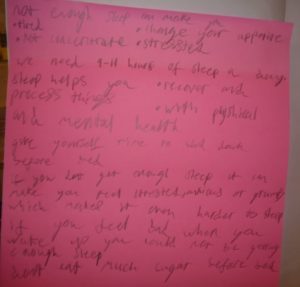 not enough sleep can make you
• tired • change your appetite
• not concentrate • stressed
we need 9-11 hours of sleep a
sleep helps you • recover and
process things • with pyshical
and mental health
give yourself time to wind down
before bed
if you dont get enough sleep it can
make you feel stressed, anxious or grumpy
which makes it even harder to sleep
if you feel bad when you
wake up you could not be getting
enough sleep
dont eat much sugar before bed